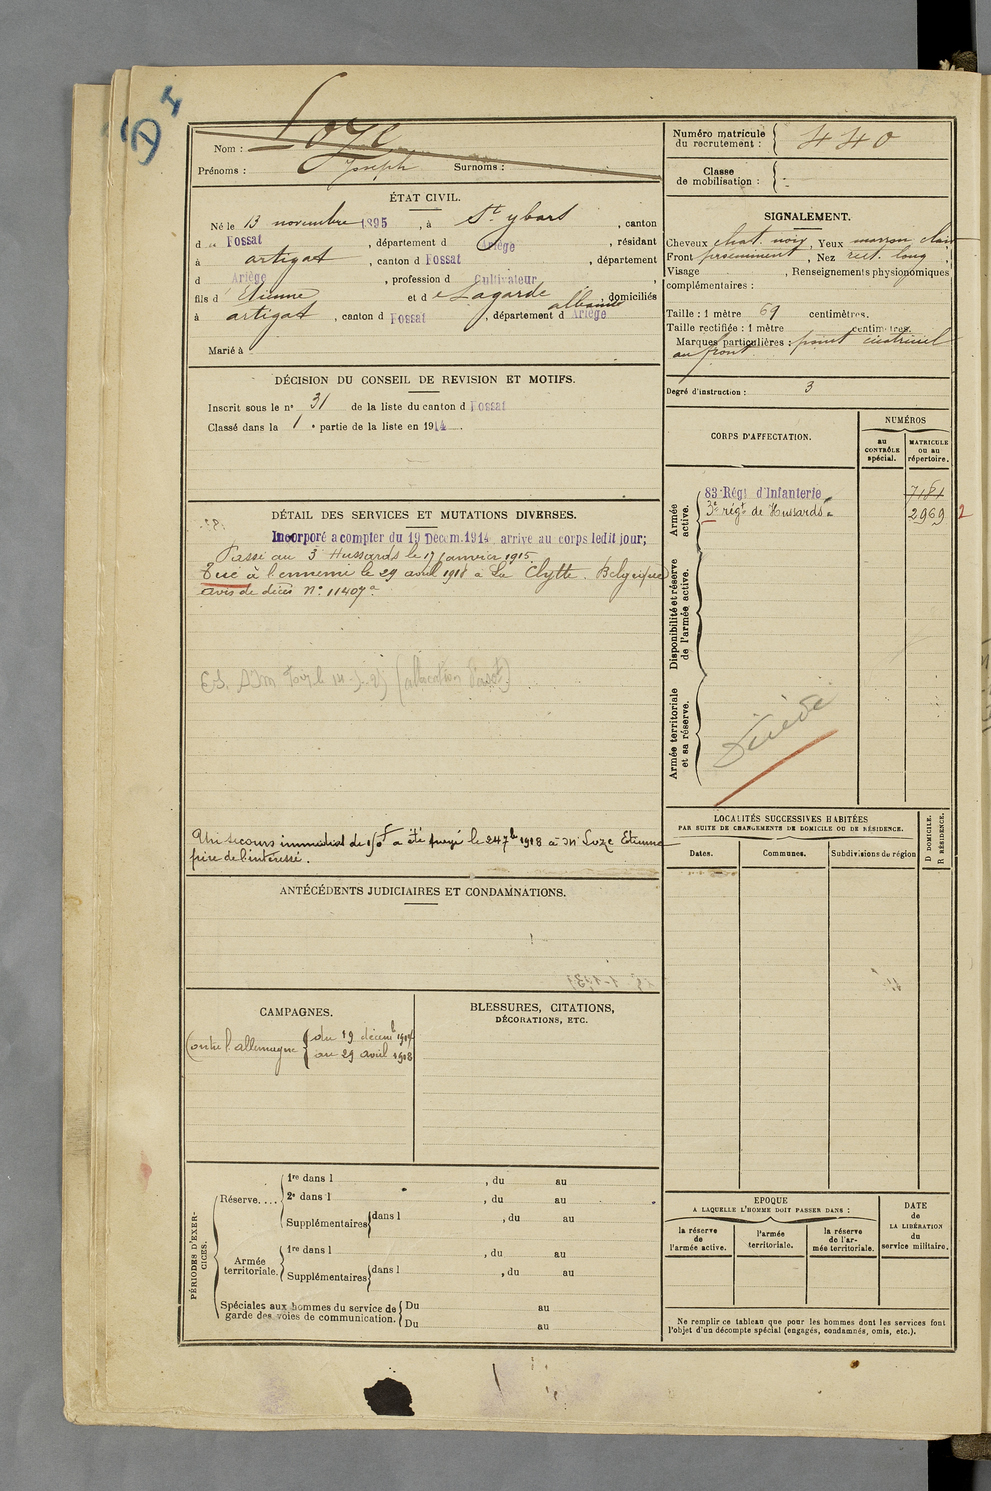 D I
Nom : Loze
Prénoms : Joseph Surnoms :
ÉTAT CIVIL.
Né le 13 novembre 1895, à St ybars, canton
d Fossat, département d Ariège, résidant
à artigat, canton d Fossat, département
d Ariège, profession d Cultivateur,
fils d'Etienne et de Lagarde albanie, domiciliés
à artigat, canton d Fossat, département d Ariège
Marié à
DÉCISION DU CONSEIL DE REVISION ET MOTIFS.
Inscrit sous le n° 31 de la liste du canton d Fossat
Classé dans la 1° partie de la liste en 1914.
DÉTAIL DES SERVICES ET MUTATIONS DIVERSES.
Incorporé a compter du 19 Décem. 1914 arrivé au corps ledit jour;
Passé au 3e Hussards le 17 janvier 1915
Tué à l'ennemi le 29 avril 1918 à La Clytte. Belgique
avis de décès N° 11407
Un secours immédiat de 150f a été payé le 24 7bre 1918 à Mr Loze Etienne
père de l'intéressé.
ANTÉCÉDENTS JUDICIAIRES ET CONDAMNATIONS.
CAMPAGNES.
Contre l'allemagne { du 19 décemb 1914
au 29 avril 1918
BLESSURES, CITATIONS,
DÉCORATIONS, ETC.
PÉRIODES D'EXER-
CICES.
Réserve....
1re dans l , du au
2e dans l , du au
Supplémentaires { dans l , du au
Armée
territoriale.
1re dans l , du au
Supplémentaires { dans l , du au
Spéciales aux hommes du service de
garde des voies de communication.
Du au
Du au
Numéro matricule
du recrutement : 440
Classe
de mobilisation :
SIGNALEMENT.
Cheveux chat. noir, Yeux marron clair
Front proéminent, Nez rect. long,
Visage , Renseignements physionomiques
complémentaires :
Taille : 1 mètre 69 centimètres.
Taille rectifiée : 1 mètre centimètres.
Marques particulières : point cicatriciel
au front
Degré d'instruction : 3
CORPS D'AFFECTATION.
NUMÉROS
au
CONTRÔLE
spécial.
MATRICULE
ou au
répertoire.
Armée
active.
83e Régt d'Infanterie 7181
3e régt de Hussards 2969 2
Disponibilité et réserve
de l'armée active.
Armée territoriale
et sa réserve.
Décédé
LOCALITÉS SUCCESSIVES HABITÉES
PAR SUITE DE CHANGEMENTS DE DOMICILE OU DE RÉSIDENCE.
Dates. Communes. Subdivisions de région
D DOMICILE.
R RÉSIDENCE.
EPOQUE
A LAQUELLE L'HOMME DOIT PASSER DANS :
la réserve
de
l'armée active.
l'armée
territoriale.
la réserve
de l'ar-
mée territoriale.
DATE
de
LA LIBÉRATION
du
service militaire.
Ne remplir ce tableau que pour les hommes dont les services font
l'objet d'un décompte spécial (engagés, condamnés, omis, etc.).